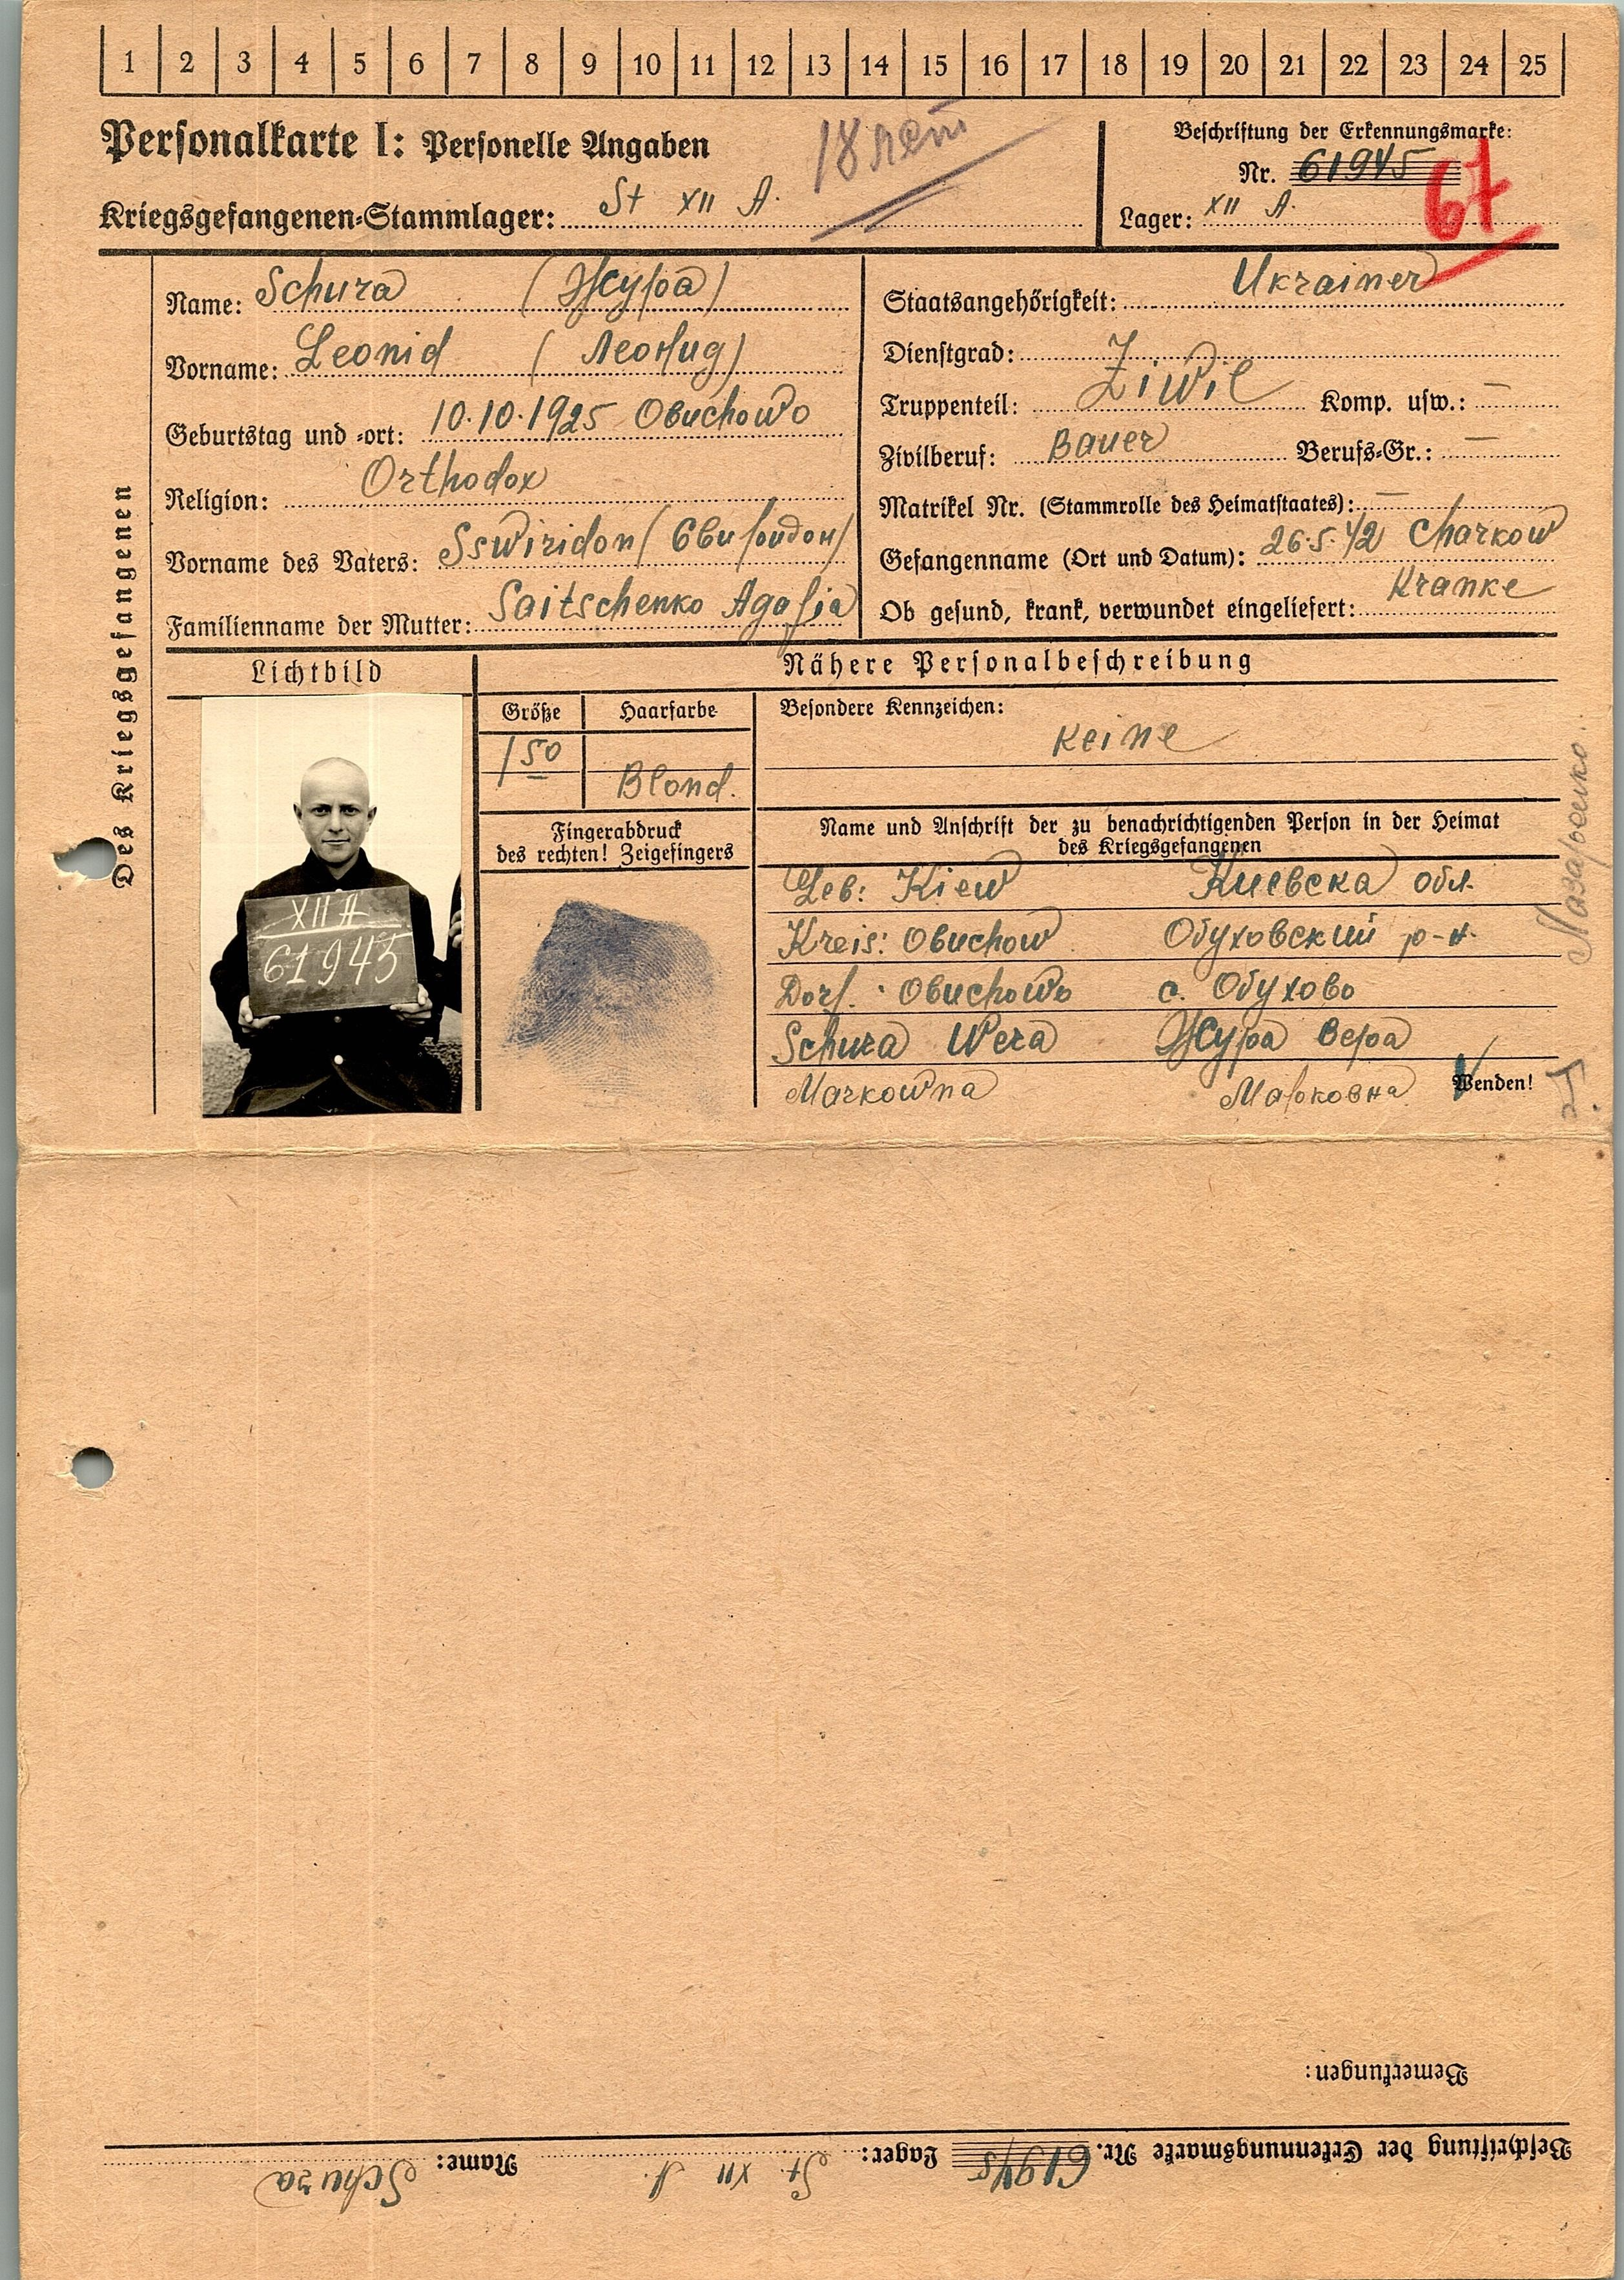 1 2 3 4 5 6 7 8 9 10 11 12 13 14 15 16 17 18 19 20 21 22 23 24 25
Personalkarte I: Personelle Angaben
18 лет
Kriegsgefangenen-Stammlager: St XII A.
Beschriftung der Erkennungsmarke:
Nr. 61945
Lager: XII A.
67
Des Kriegsgefangenen
Name: Schura (Жура)
Vorname: Leonid (Леонид)
Geburtstag und -ort: 10.10.1925 Obuchowo
Religion: Orthodox
Vorname des Vaters: Sswiridon (Свиридон)
Familienname der Mutter: Saitschenko Agafia
Staatsangehörigkeit: Ukrainer
Dienstgrad:
Truppenteil: Ziwil Komp. usw.: —
Zivilberuf: Bauer Berufs-Gr.: —
Matrikel Nr. (Stammrolle des Heimatstaates): —
Gefangenname (Ort und Datum): 26.5.42 Charkow
Ob gesund, krank, verwundet eingeliefert: Kranke
Lichtbild
XII A
61945
Nähere Personalbeschreibung
Größe Haarfarbe
1 50 Blond.
Besondere Kennzeichen:
keine
Fingerabdruck
des rechten! Zeigefingers
Name und Anschrift der zu benachrichtigenden Person in der Heimat
des Kriegsgefangenen
Geb: Kiew Киевска обл.
Kreis: Obuchow Обуховский р-н.
Dorf. Obuchowo с. Обухово
Schura Wera Жура Вера
Markowna Марковна
Wenden!
Bemerkungen:
Beschriftung der Erkennungsmarke Nr. 61945 Lager: St. XII A. Name: Schura